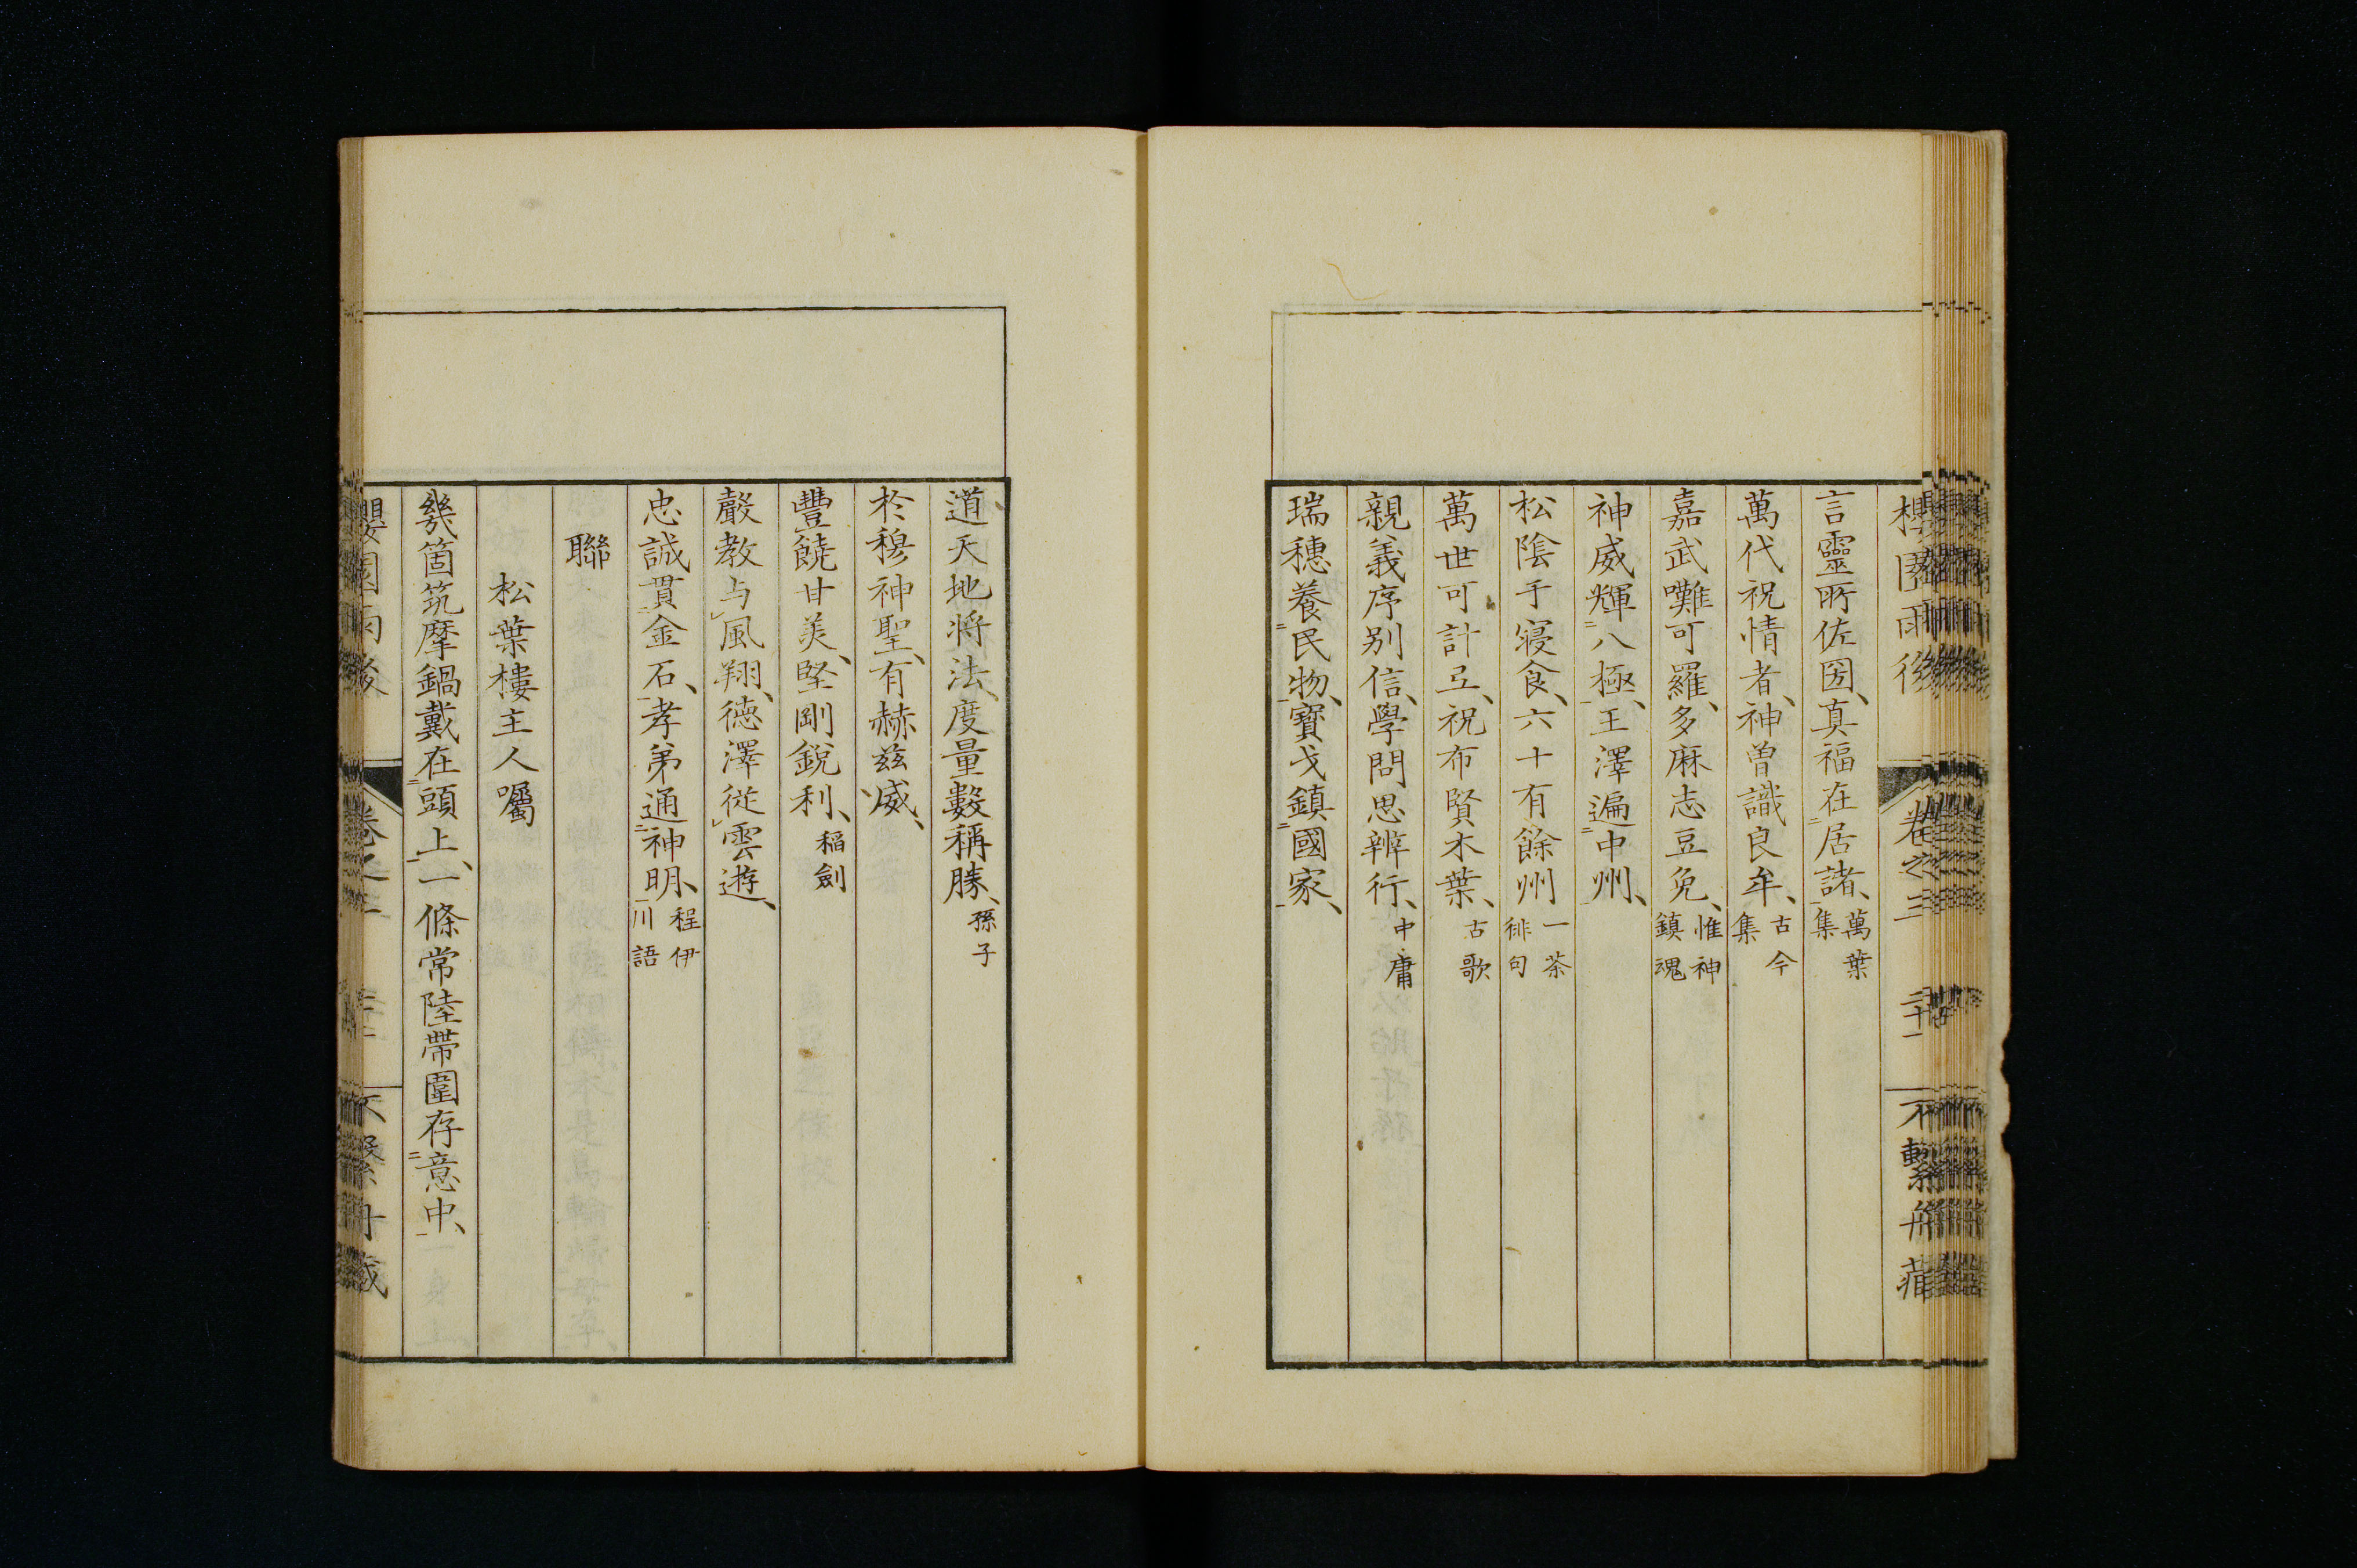 櫻園雨後 卷之三 三十一 不繫舟藏
言靈所佐国、真福在居諸、萬葉集
萬代祝情者、神曽識良牟、古今集
嘉武嚾可羅、多麻志豆免、惟神鎮魂
神威輝八極、王澤遍中州、
松陰手寝食、六十有餘州 一茶徘句
萬世可計弖、祝布賢木葉、古歌
親義序别信、學問思辨行、中庸
瑞穗養民物、寶戈鎮國家、
道天地将法、度量數稱勝、孫子
於穆神聖、有赫兹威、
豐饒甘美、堅剛鋭利、稲劍
嚴教与風翔、德澤從雲遊、
忠誠貫金石、孝弟通神明、程伊川語
聯
松葉樓主人囑
幾箇筑摩鍋戴在頭上、一條常陸帶圍存意中、